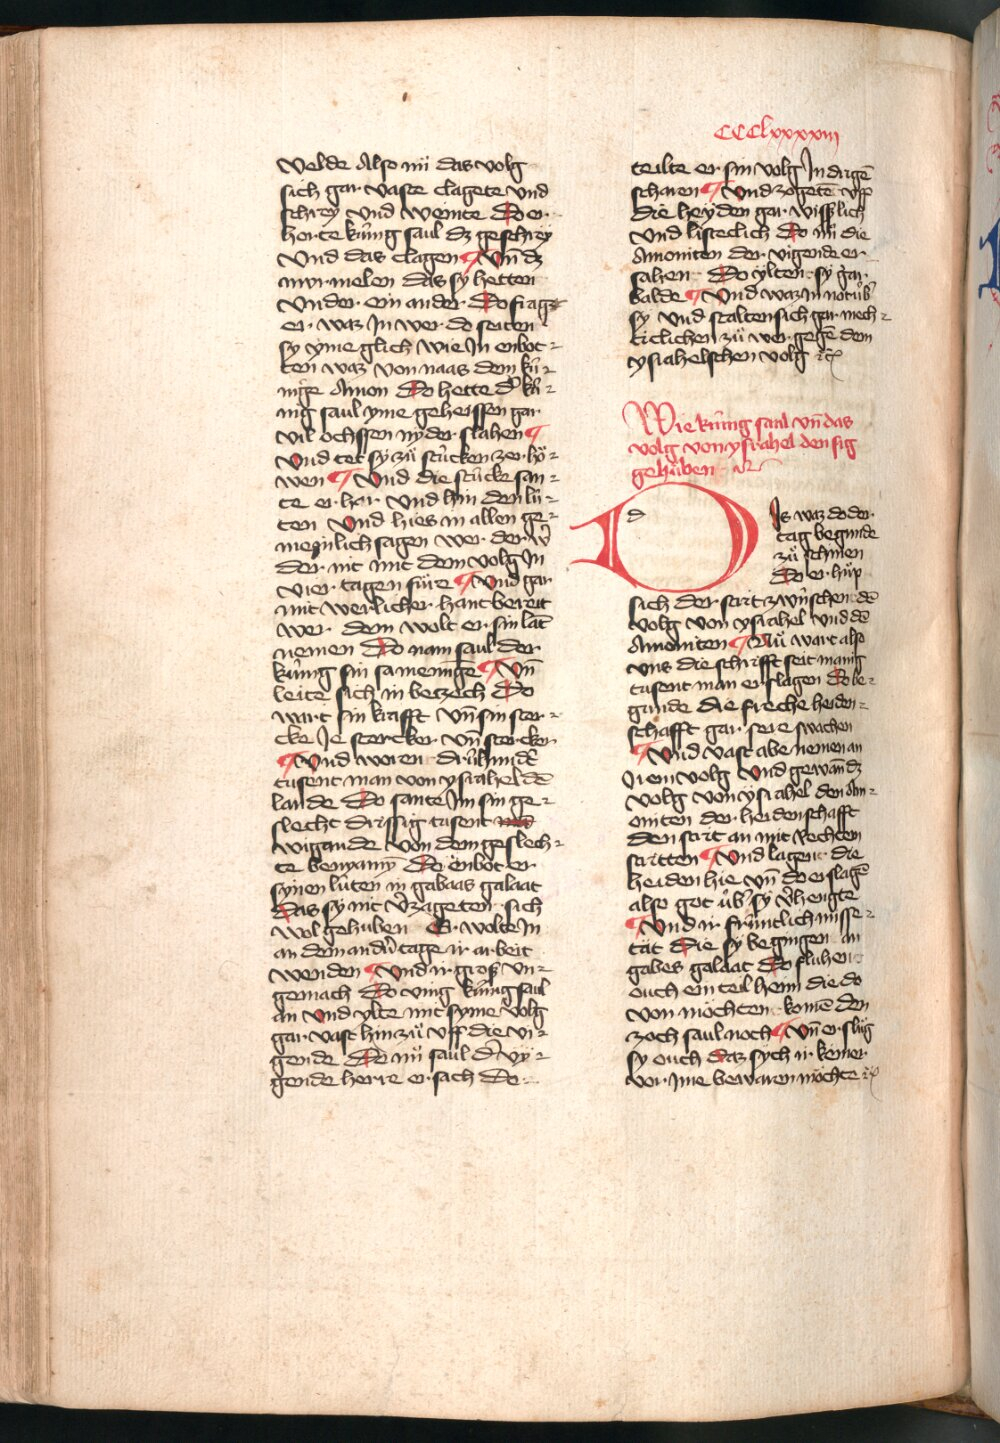 CCClxxxxiii
velde Also nü das volg
sich gar vaste clagete vnd
schrey vnd weinte Do er
horte kúnig saul dz geschrey
vnd das clagen ¶ Vn̄ dz
murmelen das sy hetten
vnder ein ander Do fragt
er waz In wer do seiten
sy yme glich wie In enbot⸗
ten waz von naas dem kú⸗
nige Amon Do hette d̉ kú⸗
nig saul yme geheissen gar
vil ochssen nyder slahen ¶
vnd tet sy zů stúcken zerhö⸗
wen ¶ Vnd die stúcke san⸗
te er her vnd hin den lú⸗
ten Vnd hies in allen ge⸗
meynlich sagen wer der w̉
der nit mit dem volg In
vier tagen füre ¶ Vnd gar
mit werlicher hant bereit
wer dem wolt er sin lāt
nemen Do nam saul der
kúnig sin samenūge ¶ Vn̄
leite sich in betzech Do
wart sin krafft vn̄ sin ster⸗
cke Je stercker vn̄ stercker
¶ Vnd woren drúhund̉t
tusent man von ysrahel dē
lande Do sante Im sin ge⸗
slecht drissig tusent
wigande von dem geslech⸗
te benyamȳ Do enbot er
synen lúten in gabaas galaat
Das sy nit v̉zageten sich
wol gehuben Er wolte In
an dem and̉n tage ir arbeit
wenden ¶ Vnd ir gros vn⸗
gemach Do ving kúnig saul
an vnd ylte mit syme volg
gar vast hin zů vff die vi⸗
gende Do nü saul d̉ vÿ⸗
gende herre er sach Do
teilte er sin volg In drigē
scharen ¶ Vnd zogetē vff
die heyden gar wisslich
vnd listeclich Do nü die
Amoniten der vigende er
sahen Do ylten sy gar
balde ¶ Vnd waz in not úb̉
sy vnd stalten sich gar mech⸗
ticlichen zů wer gegē dem
ysrahelschen volg ꝛc
Wie kúnig saul vn̄ das
volg von ysrahel den sig
gehůben ꝛc
DIs waz do der
tag begunde
zů schinen
Do er hůp
sich der strit zwúschen dē
volg von ysrahel vnd dē
Amoniten ¶ Nü wart also
vns die schrifft seit manig
tusent man erslagen Do be⸗
gunde die freche heiden⸗
schafft gar sere swachen
¶ Vnd vast abe nemen an
Irem volg Vnd gewan dz
volg von ysrahel den Am⸗
oniten der heidenschafft
den strit an mit rechten
stritten ¶ Vnd lagent die
heiden hie vn̄ do erslagē
also got úb̉ sy v̉hengte
¶ Vnd ir frúntlich misse⸗
tät Die sy begingen an
gabes galaat Do fluhent
ouch ein teil heim die do
von mochten komē den
zoch saul noch ¶ Vn̄ er slůg
sy ouch Daz sych ir keiner
vor Ime bewaren mochte ꝛc